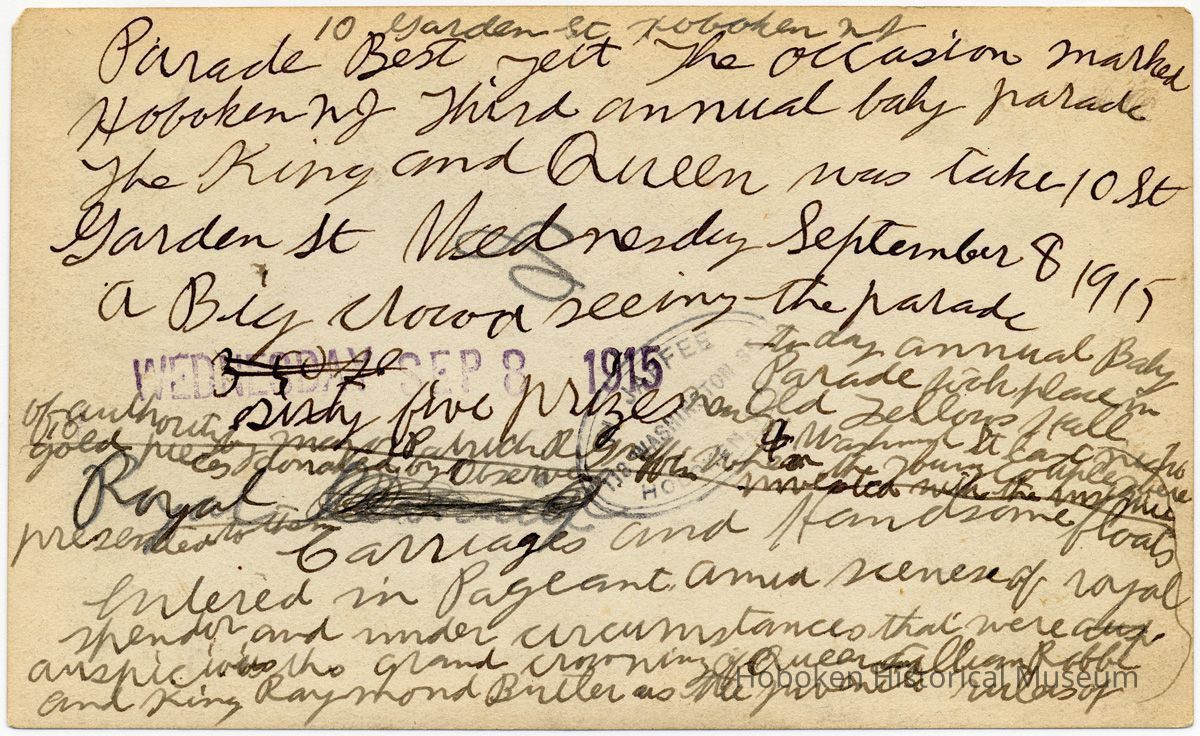 10 Garden St Hoboken NJ
Parade Best yett The occasion marked
Hoboken NJ Third annual baby parade
The King and Queen was take 10 St
Garden St Wednesday September 8 1915
a Big crowd seeing the parade
WEDNESDAY SEP 8 1915
to day annual Baby
Parade place in
sixty five prizes
Odd Fellows Hall
Washington St
of authority by Mayor Patrick R
118 WASHINGTON
invested with the
gold pieces donated by Observer
the Young Couple were
Royal
presented to them
Carriages and Handsome floats
Entered in Pageant amid scenes of royal
spendor and under circumstances that were
auspicious the grand crowning of Queen Lillian Robbe
and King Raymond Butler as the rulers of
Hoboken Historical Museum